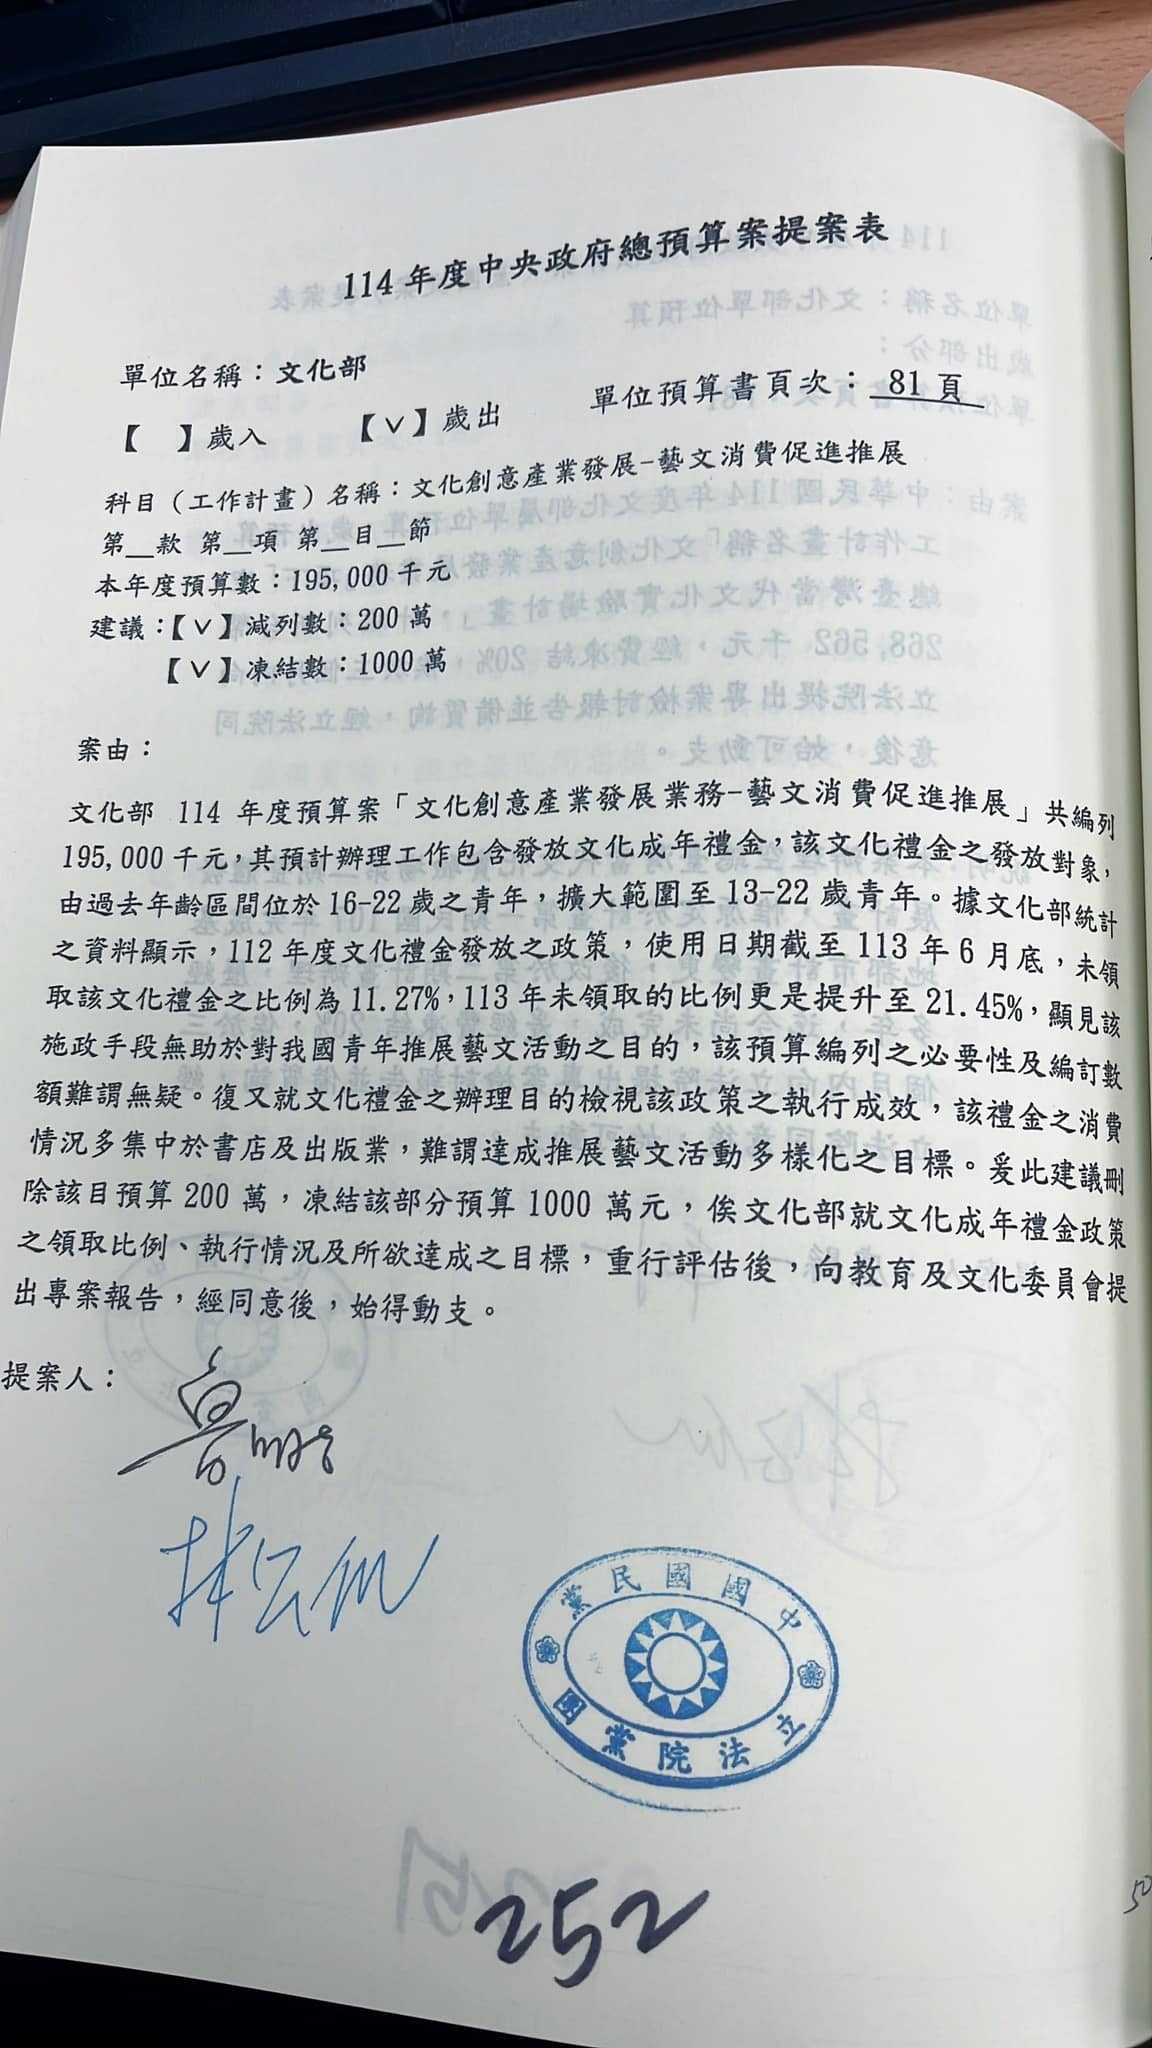 114 年度中央政府總預算案提案表
單位名稱：文化部
單位預算書頁次：81 頁
【 】歲入 【∨】歲出
科目（工作計畫）名稱：文化創意產業發展-藝文消費促進推展
第__款 第__項 第__目__節
本年度預算數：195,000 千元
建議：【∨】減列數：200 萬
【∨】凍結數：1000 萬
案由：
文化部 114 年度預算案「文化創意產業發展業務-藝文消費促進推展」共編列
195,000 千元，其預計辦理工作包含發放文化成年禮金，該文化禮金之發放對象，
由過去年齡區間位於 16-22 歲之青年，擴大範圍至 13-22 歲青年。據文化部統計
之資料顯示，112 年度文化禮金發放之政策，使用日期截至 113 年 6 月底，未領
取該文化禮金之比例為 11.27%，113 年未領取的比例更是提升至 21.45%，顯見該
施政手段無助於對我國青年推展藝文活動之目的，該預算編列之必要性及編訂數
額難謂無疑。復又就文化禮金之辦理目的檢視該政策之執行成效，該禮金之消費
情況多集中於書店及出版業，難謂達成推展藝文活動多樣化之目標。爰此建議刪
除該目預算 200 萬，凍結該部分預算 1000 萬元，俟文化部就文化成年禮金政策
之領取比例、執行情況及所欲達成之目標，重行評估後，向教育及文化委員會提
出專案報告，經同意後，始得動支。
提案人：
中國國民黨
立法院黨團
252
50